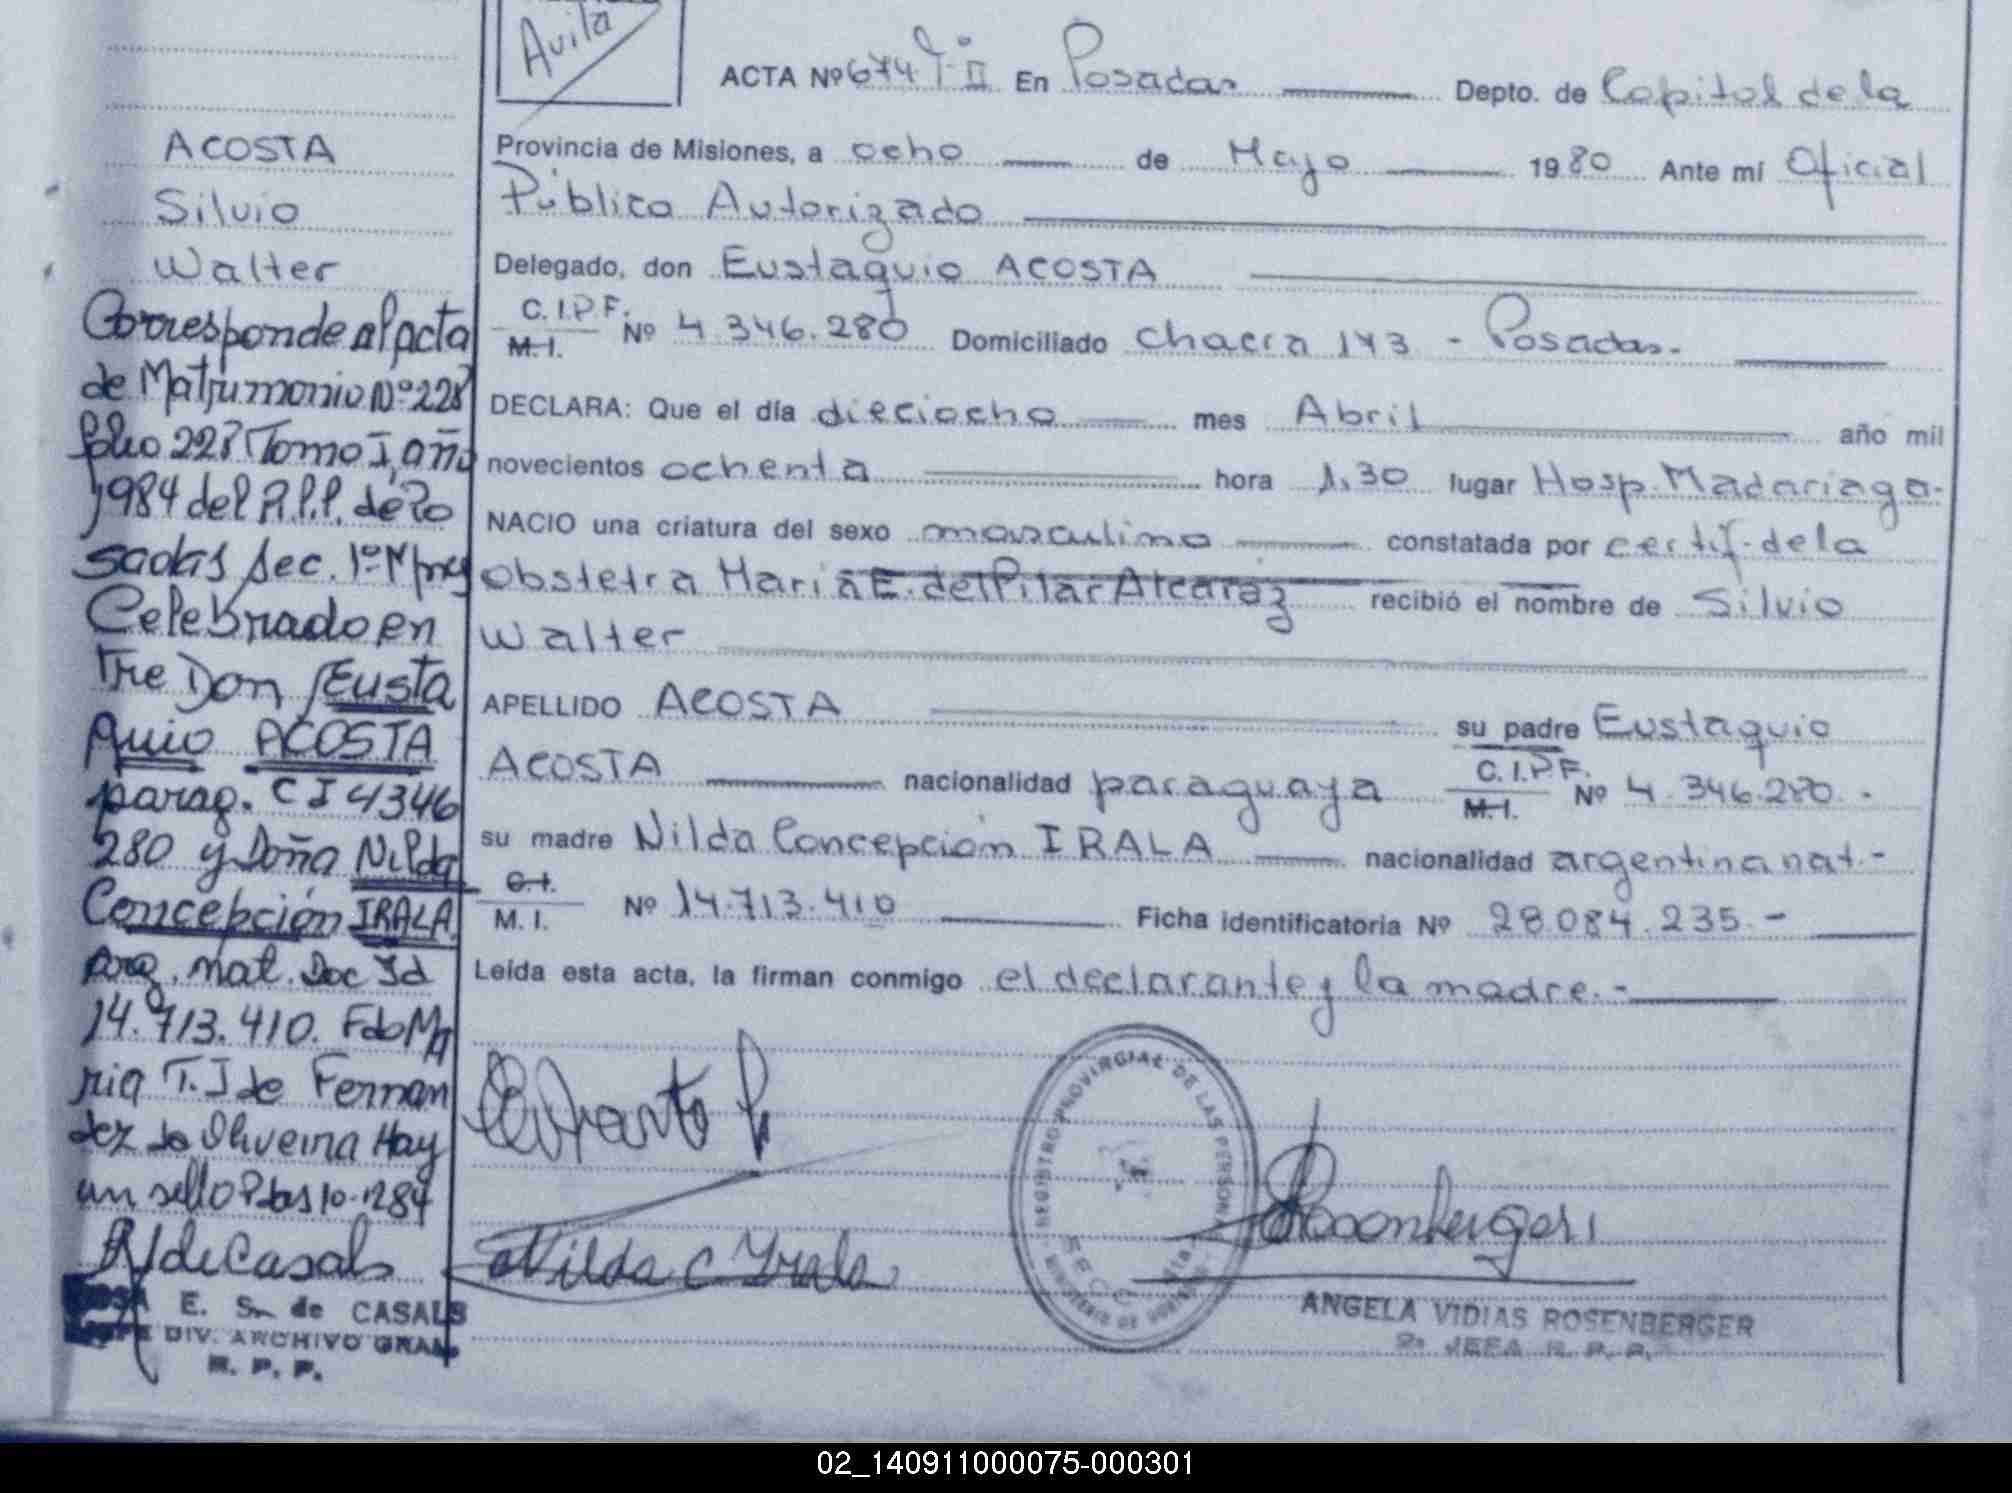 Avila
ACTA Nº 674 T-II En Posadas Depto. de Capital de la
Provincia de Misiones, a ocho de Mayo 1980 Ante mí Oficial
Público Autorizado
Delegado, don Eustaquio ACOSTA
C.I.P.F.
M.I. Nº 4.346.280 Domiciliado Chacra 143 - Posadas.-
DECLARA: Que el día dieciocho mes Abril año mil
novecientos ochenta hora 1,30 lugar Hosp. Madariaga.
NACIO una criatura del sexo masculino constatada por certif. de la
obstetra María E. del Pilar Alcaraz recibió el nombre de Silvio
Walter
APELLIDO ACOSTA su padre Eustaquio
ACOSTA nacionalidad paraguaya C.I.P.F. M.I. Nº 4.346.280.-
su madre Nilda Concepción IRALA nacionalidad argentina nat.-
C.I.
M.I. Nº 14.713.410 Ficha identificatoria Nº 28.084.235.-
Leída esta acta, la firman conmigo el declarante y la madre.-
Nilda C Irala
REGISTRO PROVINCIAL DE LAS PERSONAS
MINISTERIO DE
ANGELA VIDIAS ROSENBERGER
2º JEFA R. P. P.
ACOSTA
Silvio
Walter
Corresponde al acta
de Matrimonio Nº 228
folio 228 Tomo I año
1984 del R.P.P. de Po
sadas Sec. 1º
Celebrado en
tre Don Eusta
quio ACOSTA
parag. CI 4346
280 y Doña Nilda
Concepción IRALA
arg. nat. Doc Id
14.713.410. Fdo Ma
ria T. J de Fernan
dez de Oliveira Hay
un sello Pdas 10-1284
R/deCasals
E. S. de CASALS
JEFE DIV. ARCHIVO GRAL.
R. P. P.
02_140911000075-000301